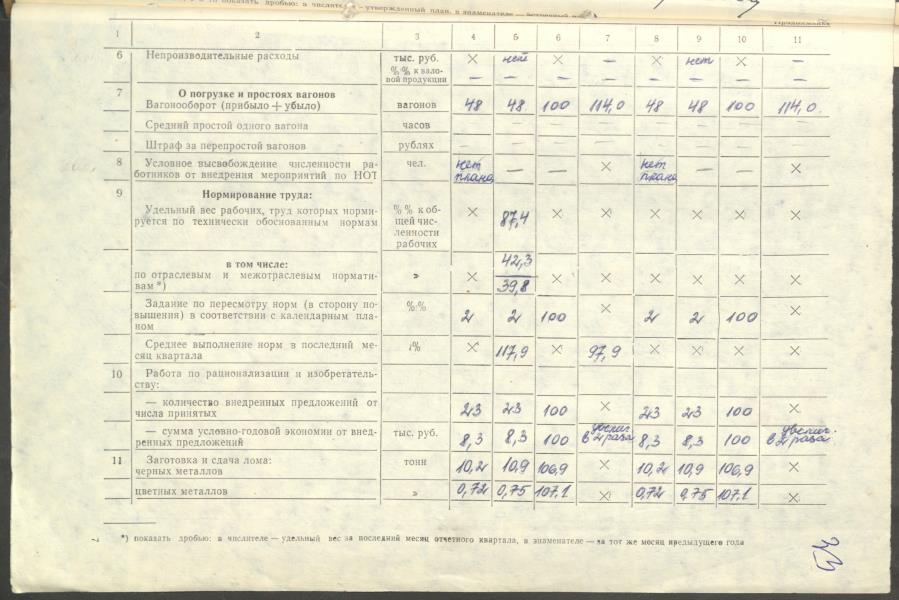 показать дробью: в числителе — утвержденный план, в знаменателе —
Продолжение
1 2 3 4 5 6 7 8 9 10 11
6 Непроизводительные расходы тыс. руб. × нет × — × нет × —
%% к вало-
вой продукции — — — — — — — —
7 О погрузке и простоях вагонов
Вагонооборот (прибыло + убыло) вагонов 48 48 100 114,0 48 48 100 114,0
Средний простой одного вагона часов — — — — — — —
Штраф за перепростой вагонов рублях — — — — — — — —
8 Условное высвобождение численности ра- чел. нет — — × нет — — ×
ботников от внедрения мероприятий по НОТ плана плана
9 Нормирование труда:
Удельный вес рабочих, труд которых норми- %% к об- × 87,4 × × × × × ×
руется по технически обоснованным нормам щей чис-
ленности
рабочих
в том числе: 42,3
по отраслевым и межотраслевым нормати- » × × × × × × ×
вам*) 39,8
Задание по пересмотру норм (в сторону по- %% × ×
вышения) в соответствии с календарным пла- 2 2 100 2 2 100
ном
Среднее выполнение норм в последний ме- % × 117,9 × 97,9 × × × ×
сяц квартала
10 Работа по рационализации и изобретатель-
ству:
— количество внедренных предложений от 23 23 100 × 23 23 100 ×
числа принятых
— сумма условно-годовой экономии от внед- тыс. руб. 8,3 8,3 100 увелич. 8,3 8,3 100 увелич.
ренных предложений в 2 раза в 2 раза
11 Заготовка и сдача лома: тонн 10,2 10,9 106,9 × 10,2 10,9 106,9 ×
черных металлов
цветных металлов » 0,72 0,75 107,1 × 0,72 0,75 107,1 ×
*) показать дробью: в числителе — удельный вес за последний месяц отчетного квартала, в знаменателе — за тот же месяц предыдущего года